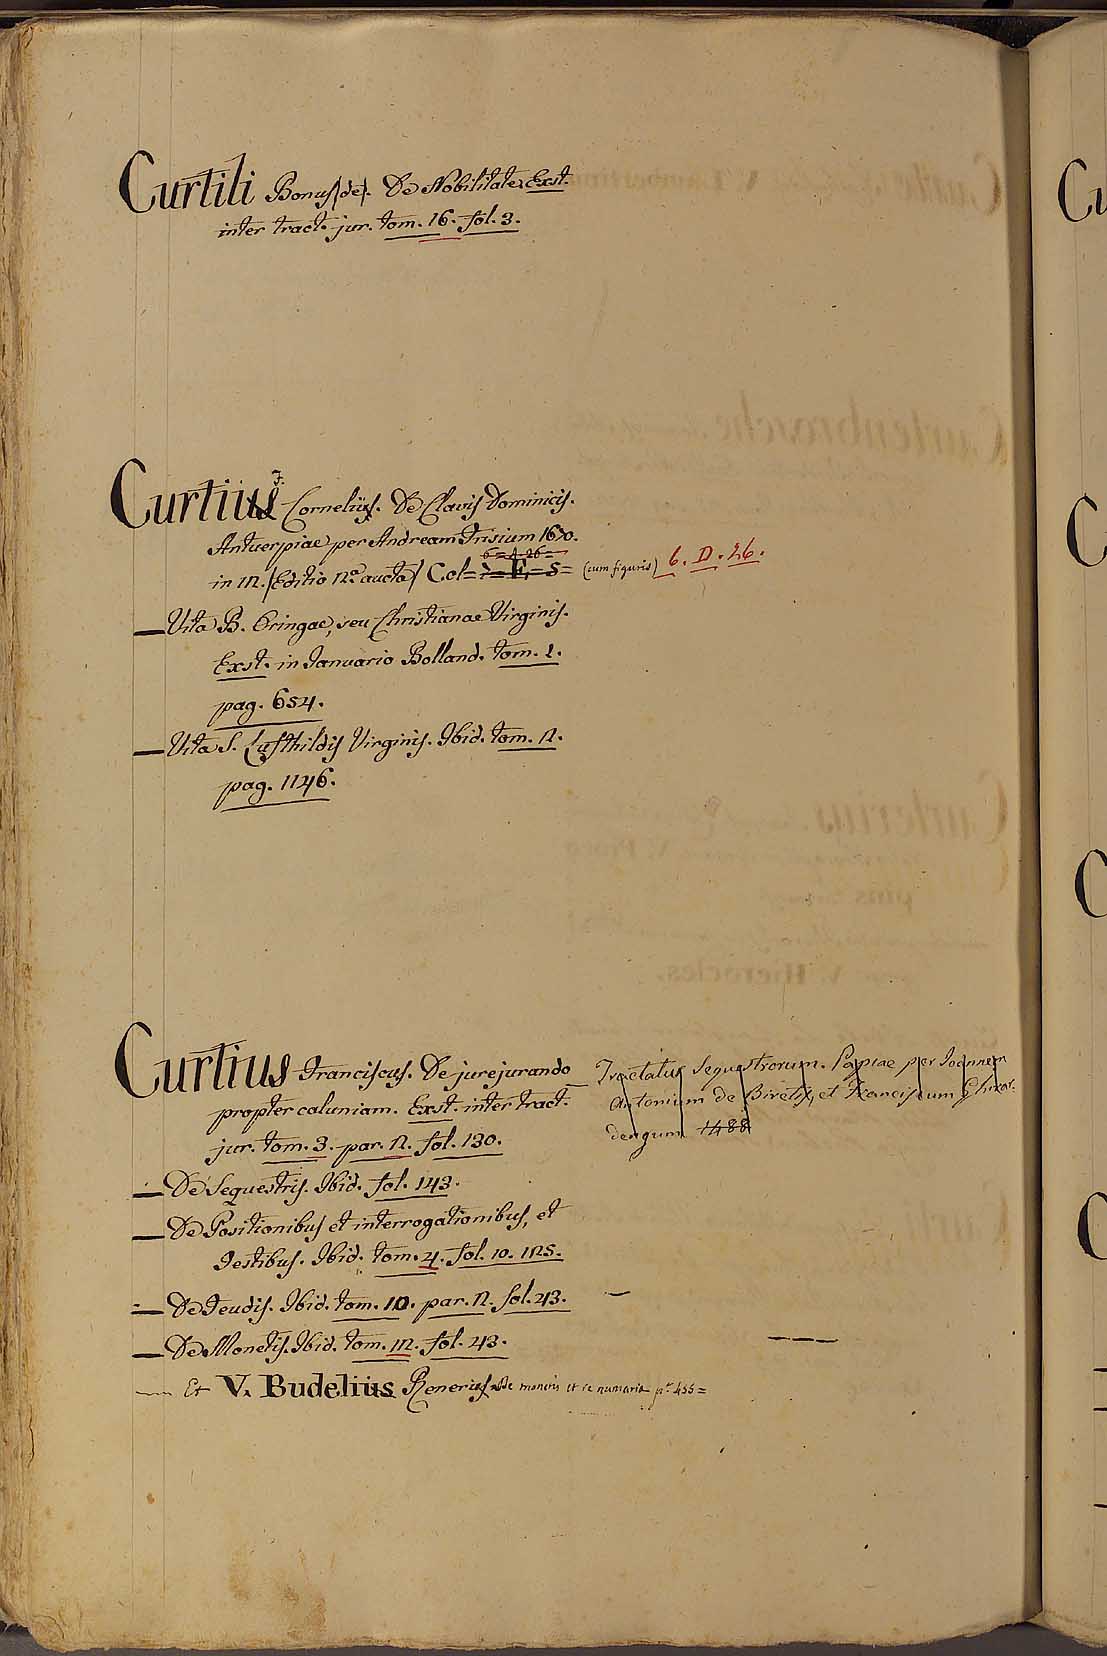 Curtili Bonus (de). De Nobilitate. Exst.
inter tract. jur. tom. 16. fol. 3.
Curtius Cornelius. De Clavis Dominicis.
Antuerpiae per Andream Frisium 1670.
6 = A. 26 =
in 12. (Editio 2.ª aucta) Col= = E, = S= (cum figuris) 6. D. 26.
— Vita B. Oringae, seu Christianae Virginis.
Exst. in Januario Bolland. tom. 1.
pag. 654.
— Vita S. Lufthildis Virginis. Ibid. tom. 2.
pag. 1146.
Curtius Franciscus. De jurejurando
propter caluniam. Exst. inter tract.
jur. tom. 3. par. 2. fol. 130.
— De Sequestris. Ibid. fol. 143.
— De Positionibus et interrogationibus, et
Testibus. Ibid. tom. 4. fol. 10. 125.
— De Feudis. Ibid. tom. 10. par. 2. fol. 43.
— De Monetis. Ibid. tom. 12. fol. 43.
— Et V. Budelius Renerius de monetis et re numaria p. 455=
Tractatus Sequestrorum. Papiae per Joannem
Antonium de Biretis, et Franciscum Ghirar-
dengum 1488